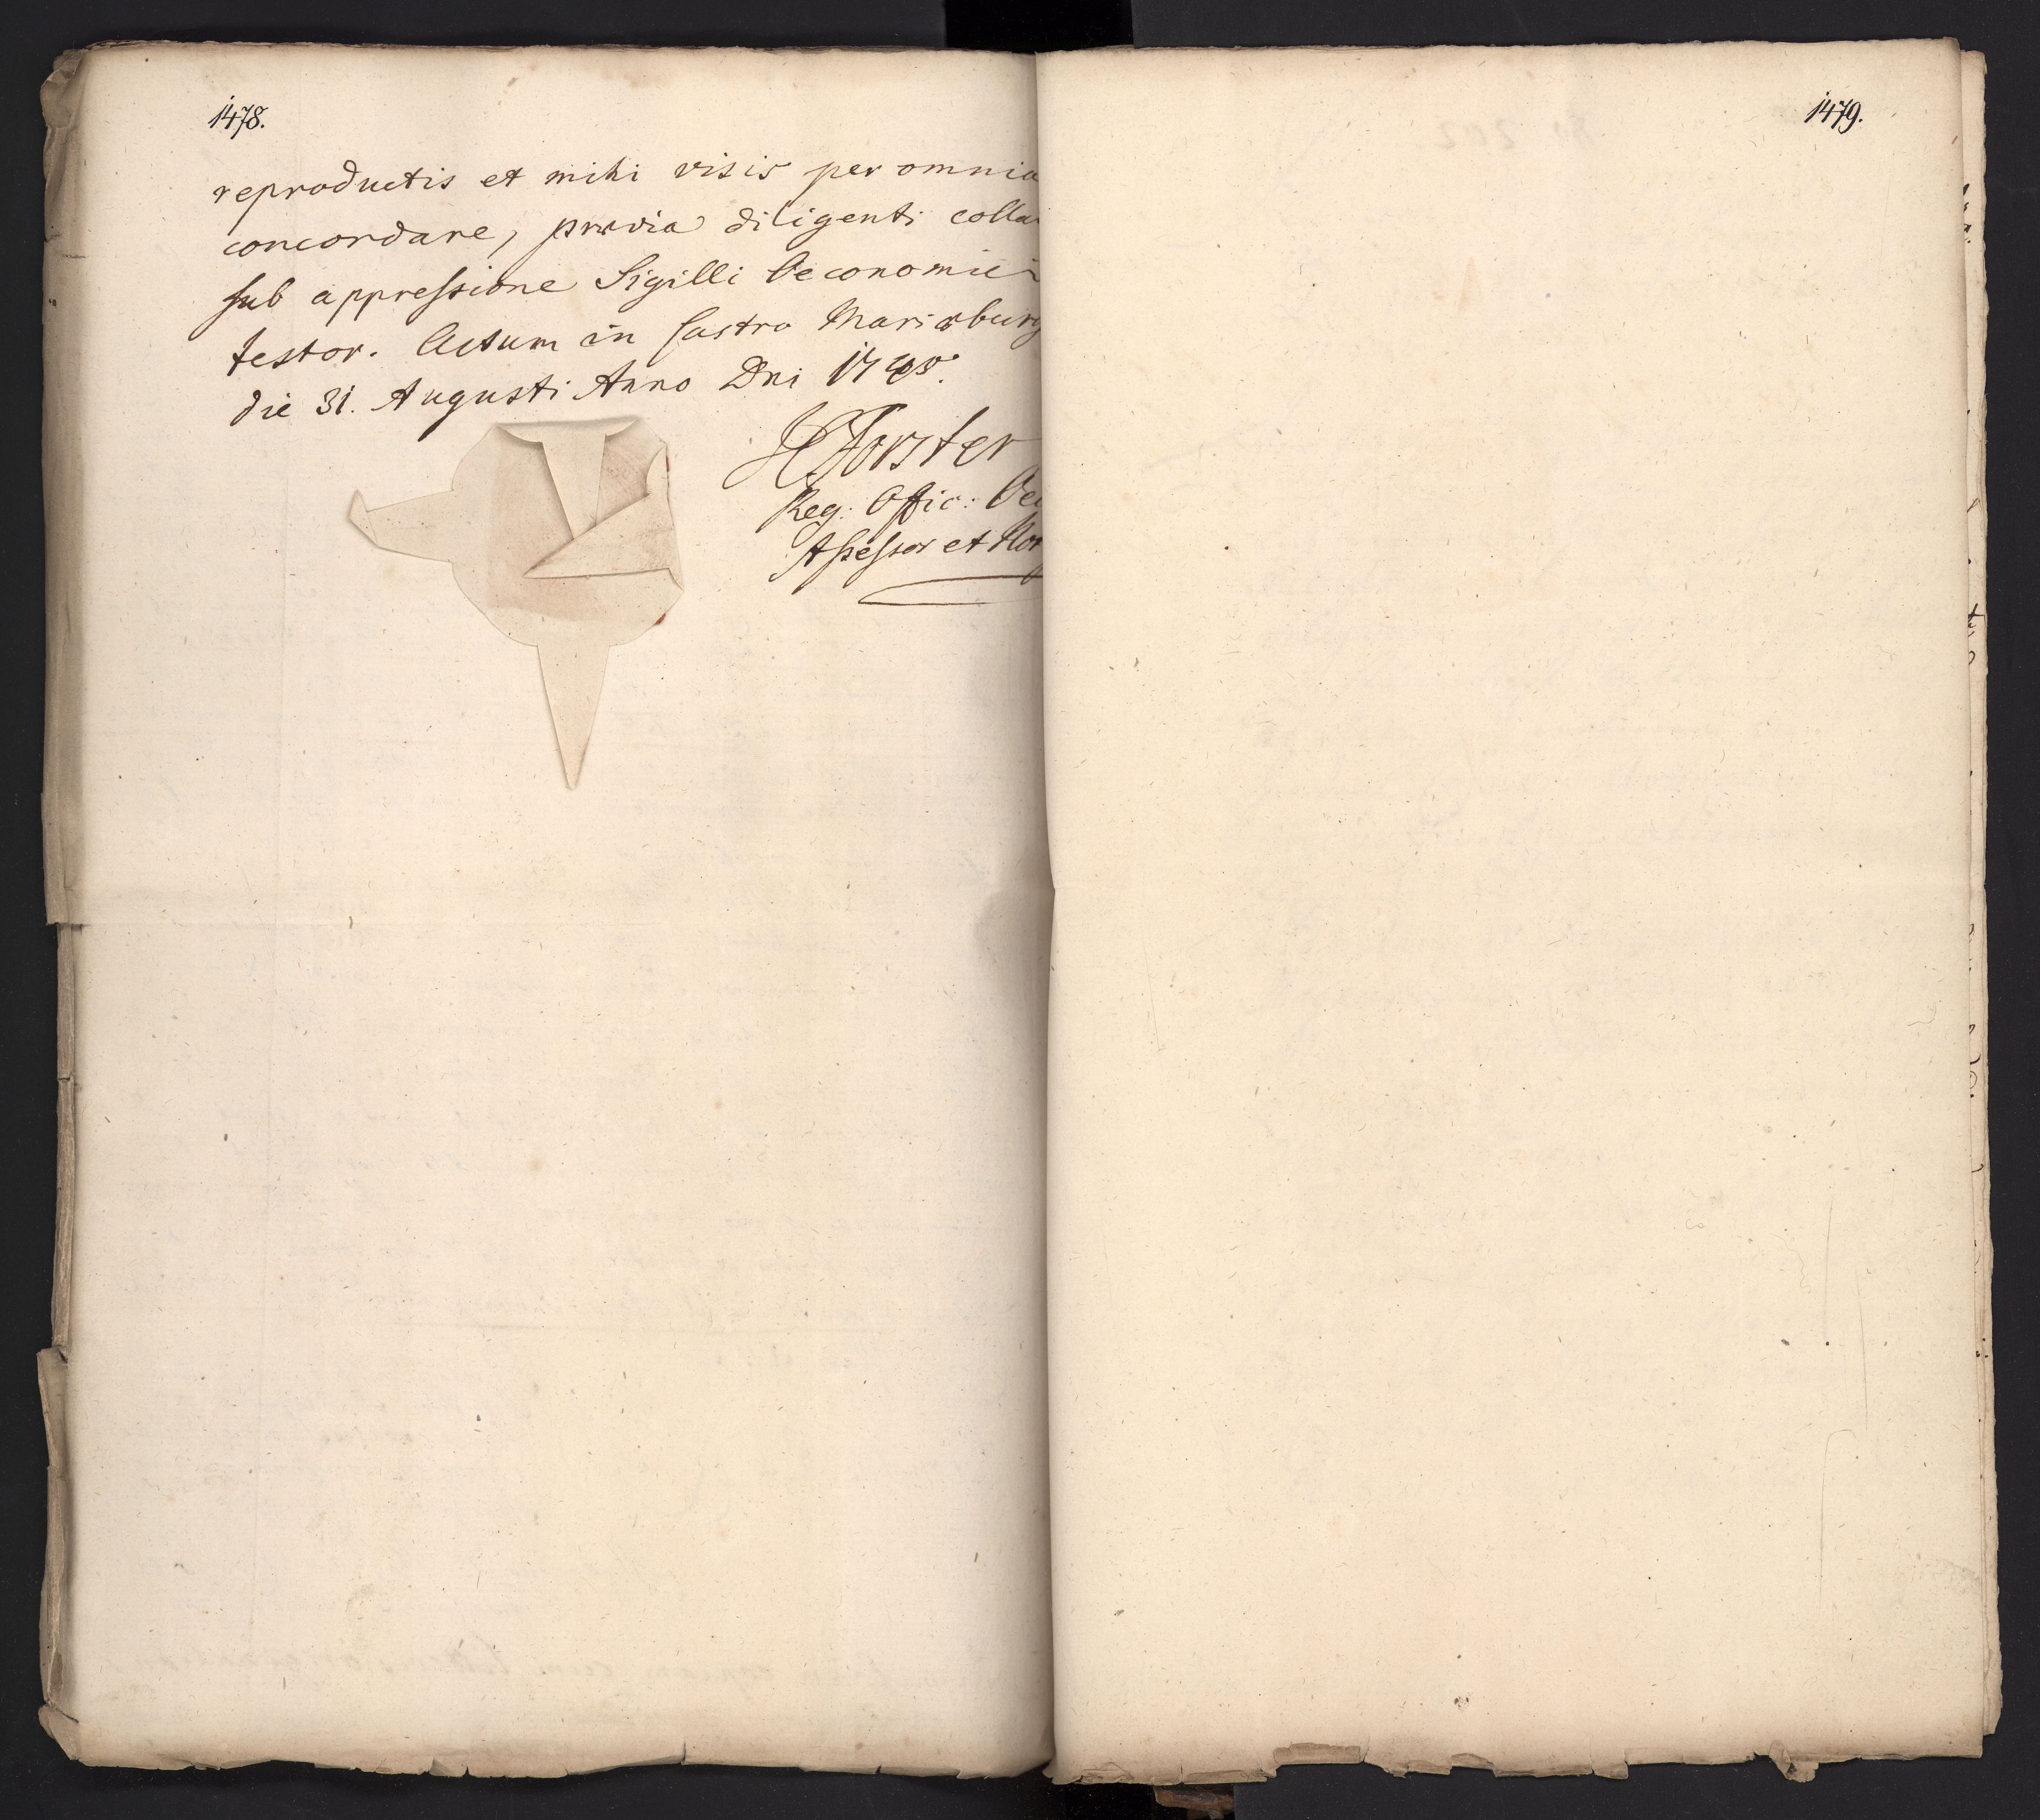 1478.
reproductis et mihi visis per omnia
concordare, prævia diligenti colla
sub appressione Sigilli Oeconomici
testor. Actum in Castro Mariæburg
die 31. Augusti Anno Dni
Forster
Reg: Offic: Oec
Assessor et Not
1479.